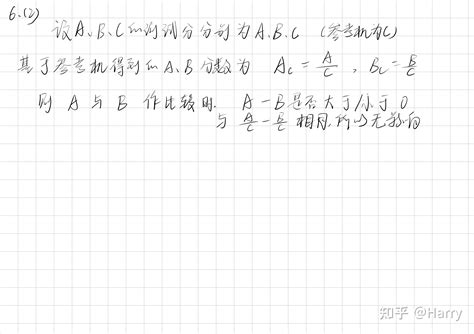 6.(2)
设A、B、C的测试分分别为A.B.C (参考机为C)
基于参考机得到的A、B分数为 A_C = A/C , B_C = B/C
则 A 与 B 作比较时, A - B 是否大于/小于 0
与 A/C - B/C 相同,所以无影响
知乎 @Harry